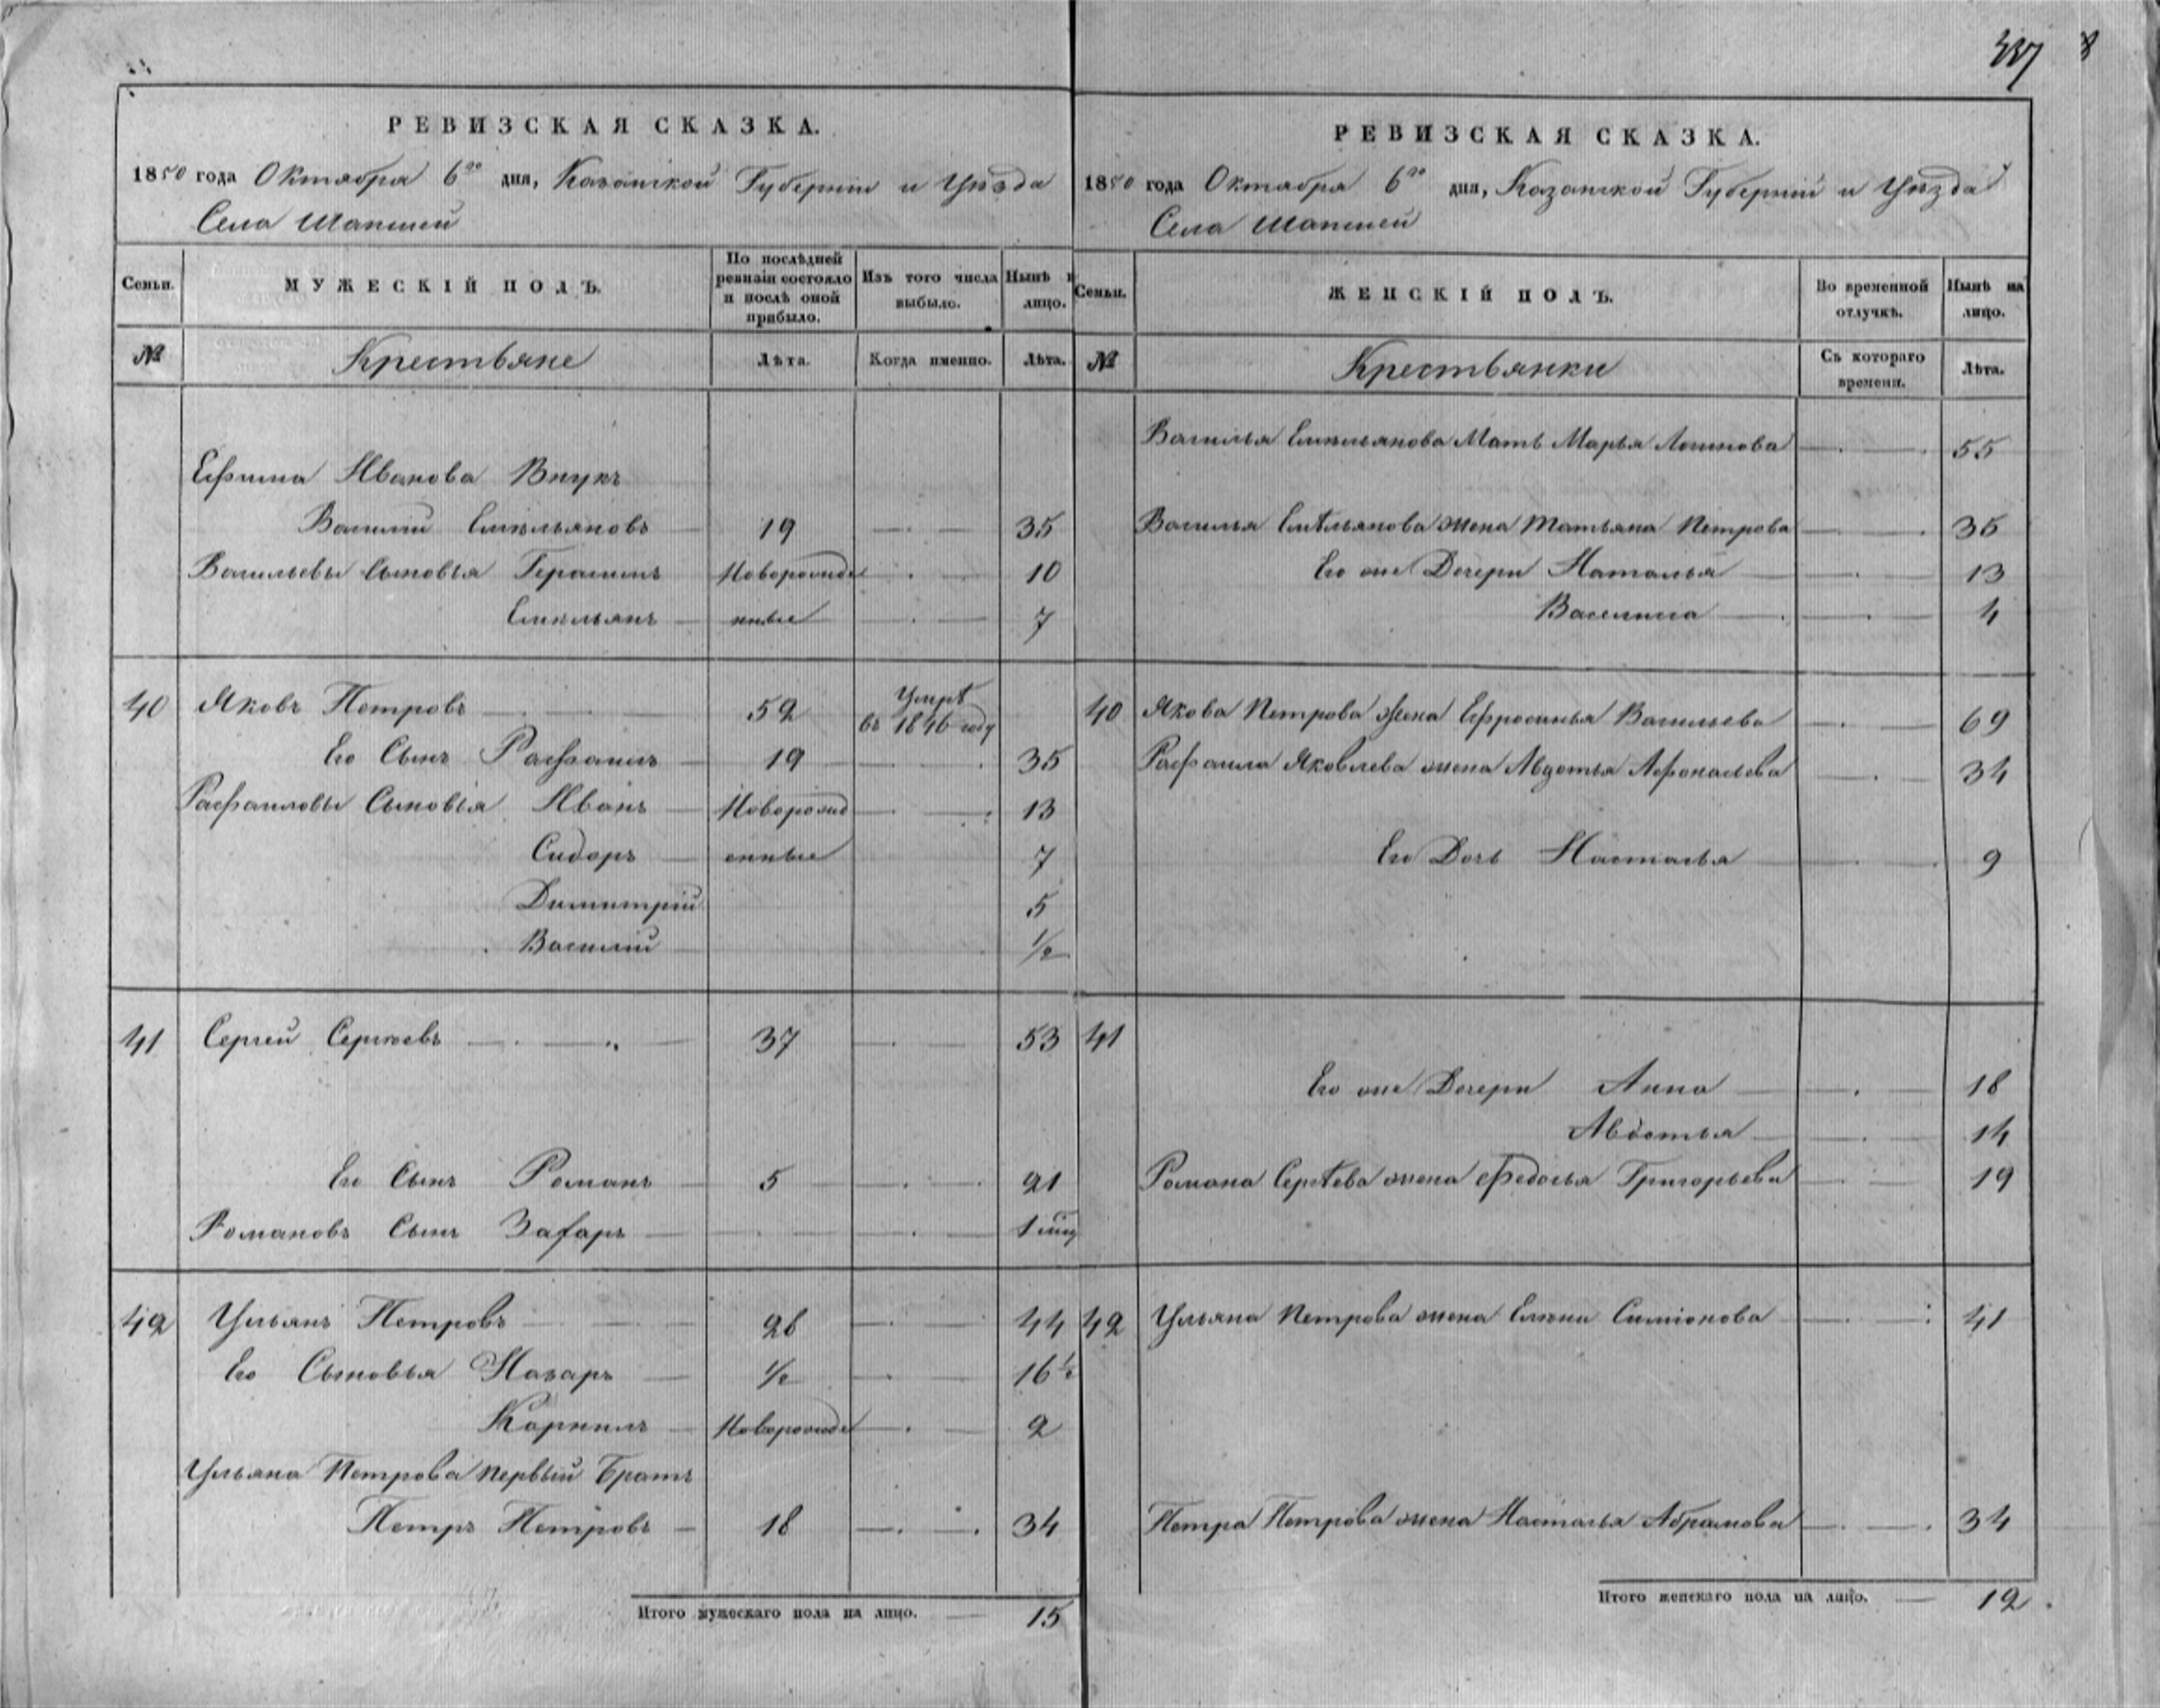 337 8
РЕВИЗСКАЯ СКАЗКА.
1850 года Октября 6го дня, Казанской Губернии и Уѣзда
Села Шапшей
Семьи.
МУЖЕСКІЙ ПОЛЪ.
По послѣдней ревизіи состояло и послѣ оной прибыло.
Изъ того числа выбыло.
Нынѣ н лицо.
№
Крестьяне
Лѣта.
Когда именно.
Лѣта.
Ефима Иванова Внукъ
Василий Емельяновъ 19 35
Васильевы Сыновья Герасимъ Новорожде 10
Емельянъ нные 7
40 Яковъ Петровъ 52 Умрѣ въ 1846 году
Его Сынъ Рафаилъ 19 35
Рафаиловы Сыновья Иванъ Новорожд 13
Сидоръ енные 7
Димитрий 5
Василий 1/2
41 Сергей Сергѣевъ 37 53
Его Сынъ Романъ 5 21
Романовъ Сынъ Захаръ 1
42 Ульянъ Петровъ 28 44
Его Сыновья Назаръ 1/2 16 1/2
Корнилъ Новорожде 2
Ульяна Петрова первый Братъ
Петръ Петровъ 18 34
Итого мужескаго пола на лицо. 15
РЕВИЗСКАЯ СКАЗКА.
1850 года Октября 6го дня, Казанской Губернии и Уѣзда
Села Шапшей
Семьи.
ЖЕНСКІЙ ПОЛЪ.
Во временной отлучкѣ.
Нынѣ на лицо.
№
Крестьянки
Съ котораго времени.
Лѣта.
Василья Емельянова Мать Марья 55
Василья Емѣльянова жена Татьяна Петрова 35
Его же Дочери Наталья 13
Василиса 4
40 Якова Петрова Жена Ефросинья Васильева 69
Рафаила Яковлева жена Авдотья Афонасьева 34
Его Дочь Настасья 9
41
Его же Дочери Анна 18
Авдотья 14
Романа Сергѣева жена Федосья Григорьева 19
42 Ульяна Петрова жена Елена Симионова 41
Петра Петрова жена Настасья Абрамова 34
Итого женскаго пола на лицо. 12.